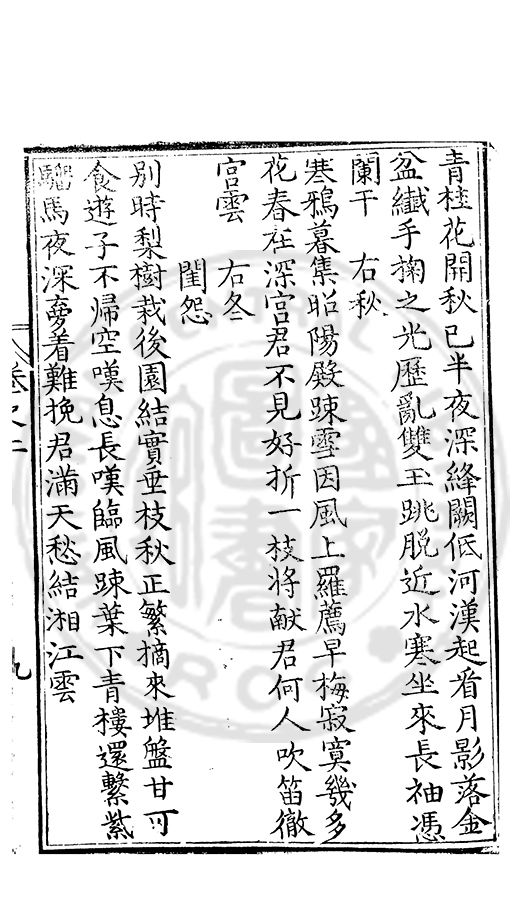 青桂花開秋已半夜深絳闕低河漢起看月影落金
盆纎手掬之光歷亂雙玉跳脫近水寒坐來長袖憑
闌干　右秋
寒鴉暮集昭陽殿踈雪因風上羅薦早梅寂寞幾多
花春在深宮君不見好折一枝將献君何人吹笛徹
宮雲　右冬
閨怨
别時梨樹栽後園結實垂枝秋正繁摘來堆盤甘可
食遊子不歸空嘆息長嘆臨風踈葉下青樓還繫紫
騮馬夜深夢着難挽君滿天愁結湘江雲
卷之二
九